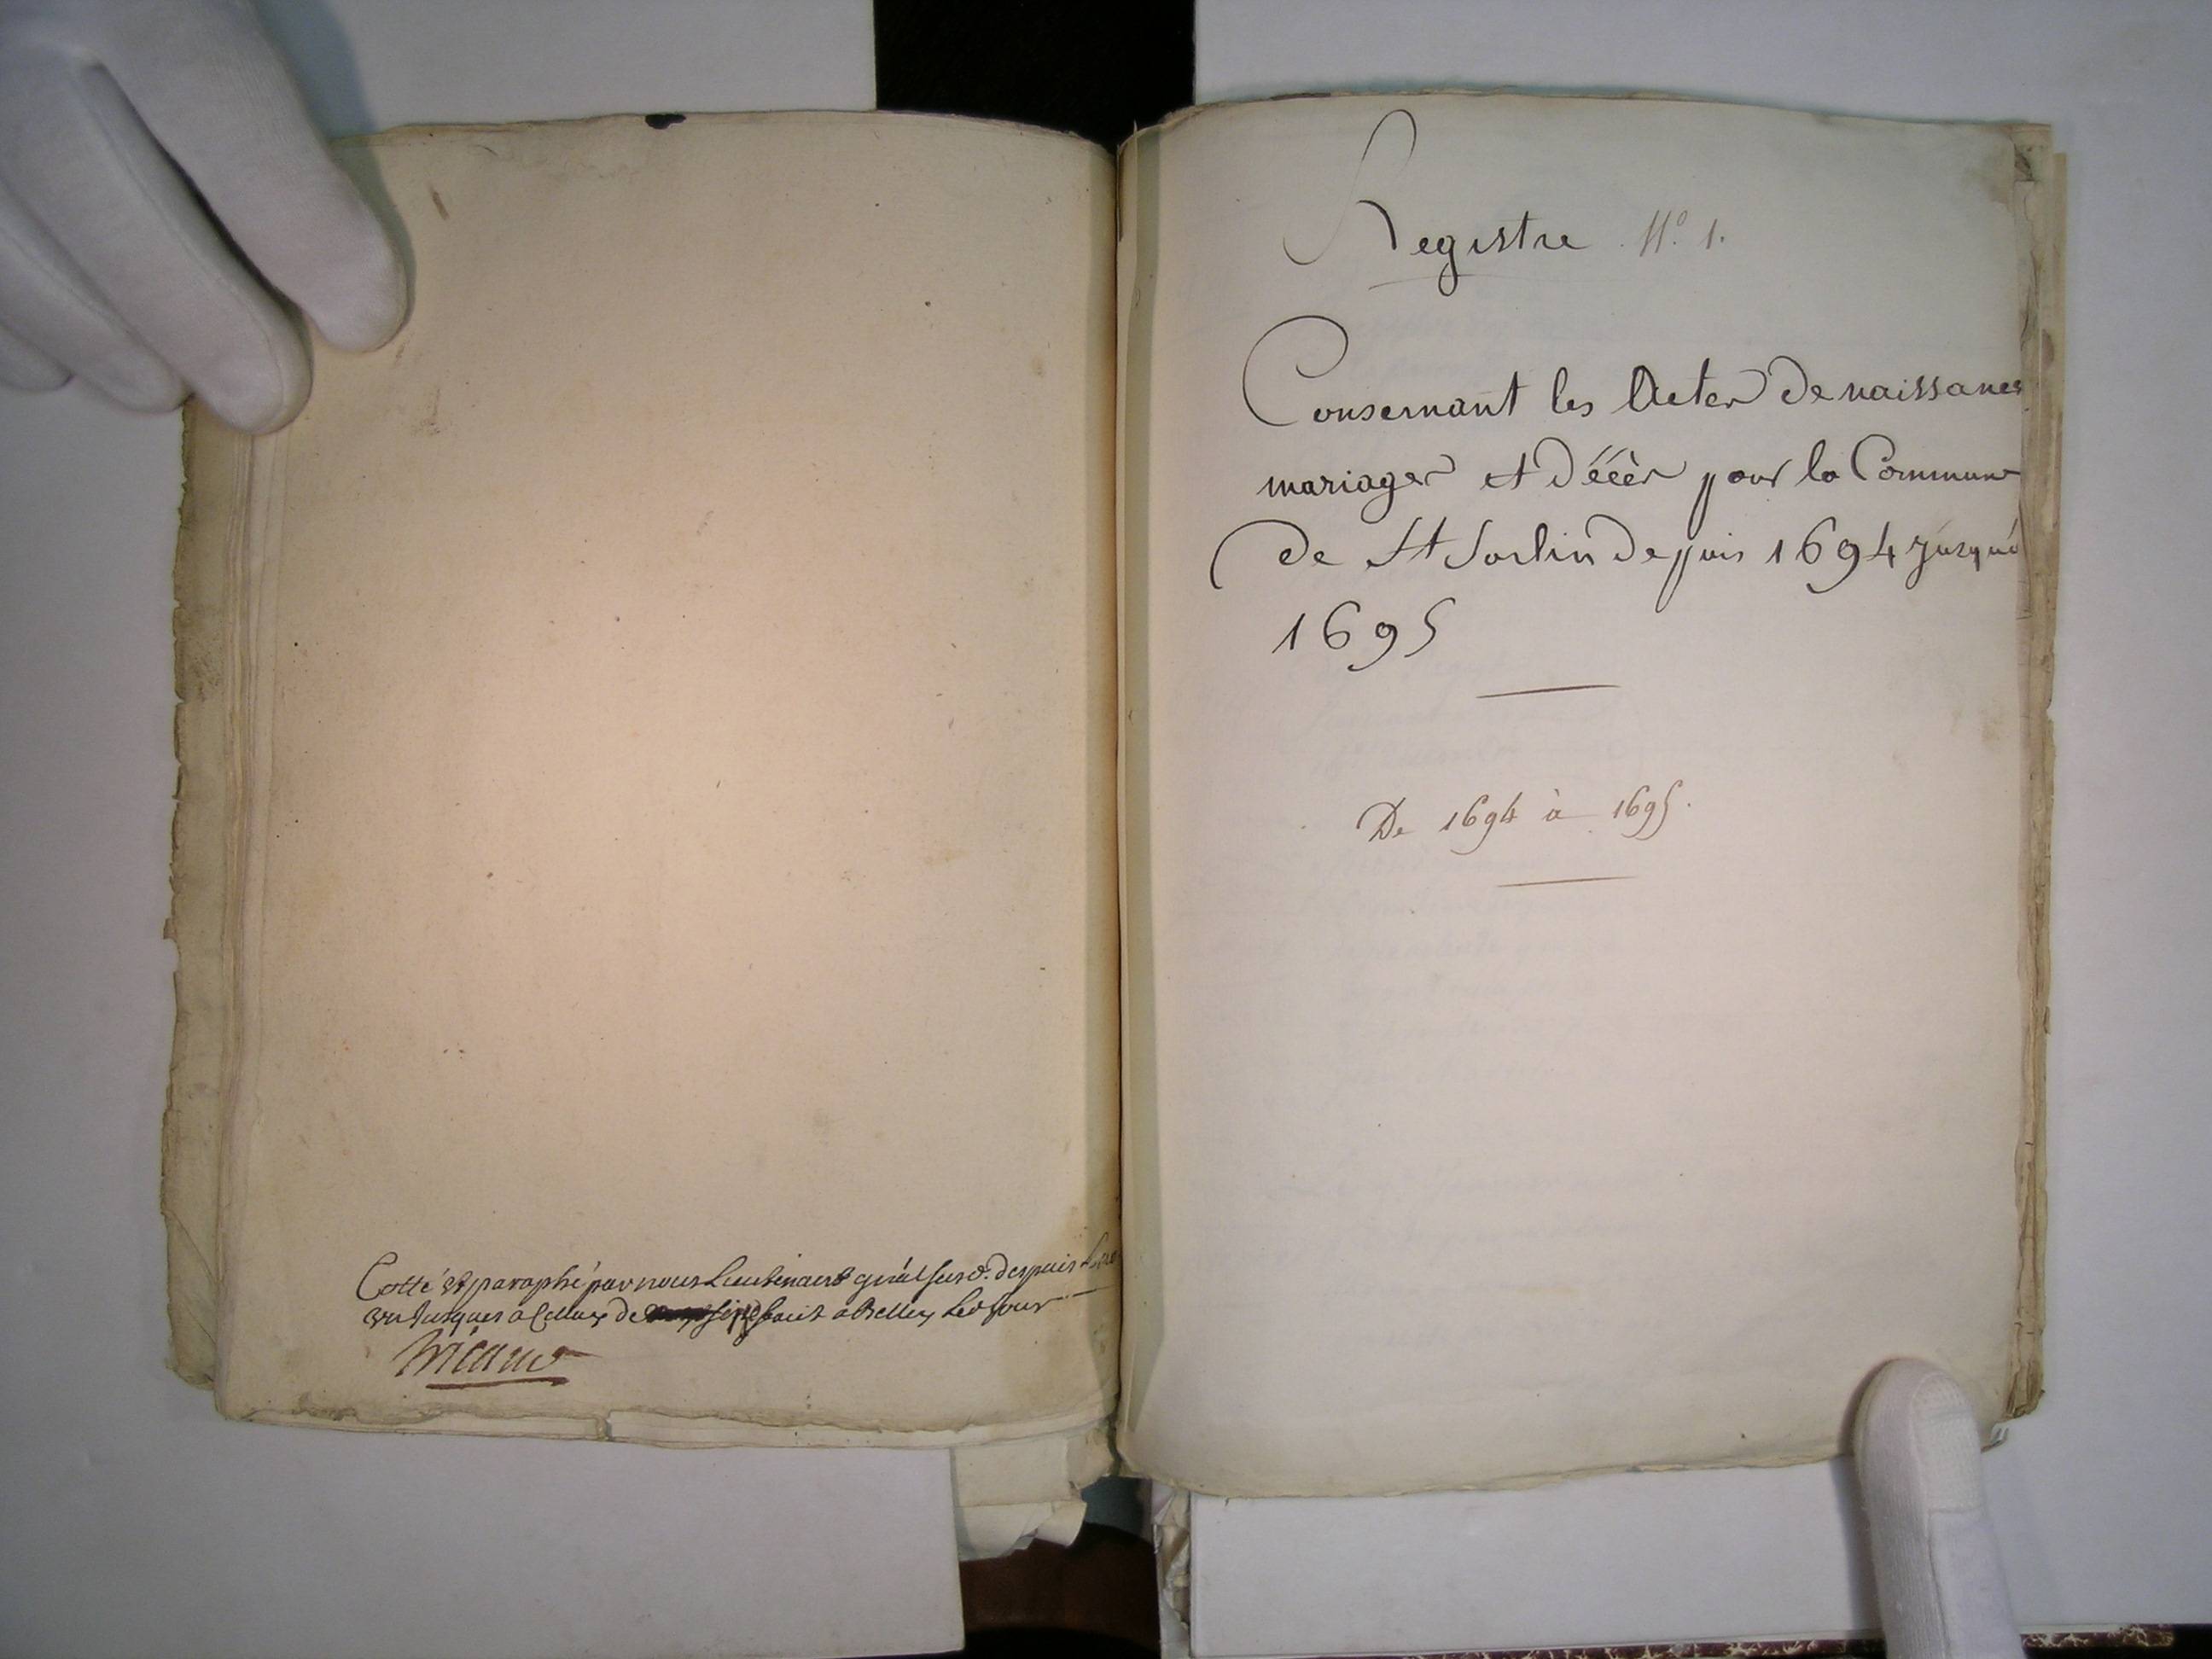 Cotté et paraphé par nous Lieutenant gnâl susd. despuis
jusques à Celluy de faict à Belley Led jour
Registre N.º 1.
Consernant les Actes de naissances
mariages et Décès pour la Commune
de St Sorlin depuis 1694 jusqu'à
1695
De 1694 à 1695.